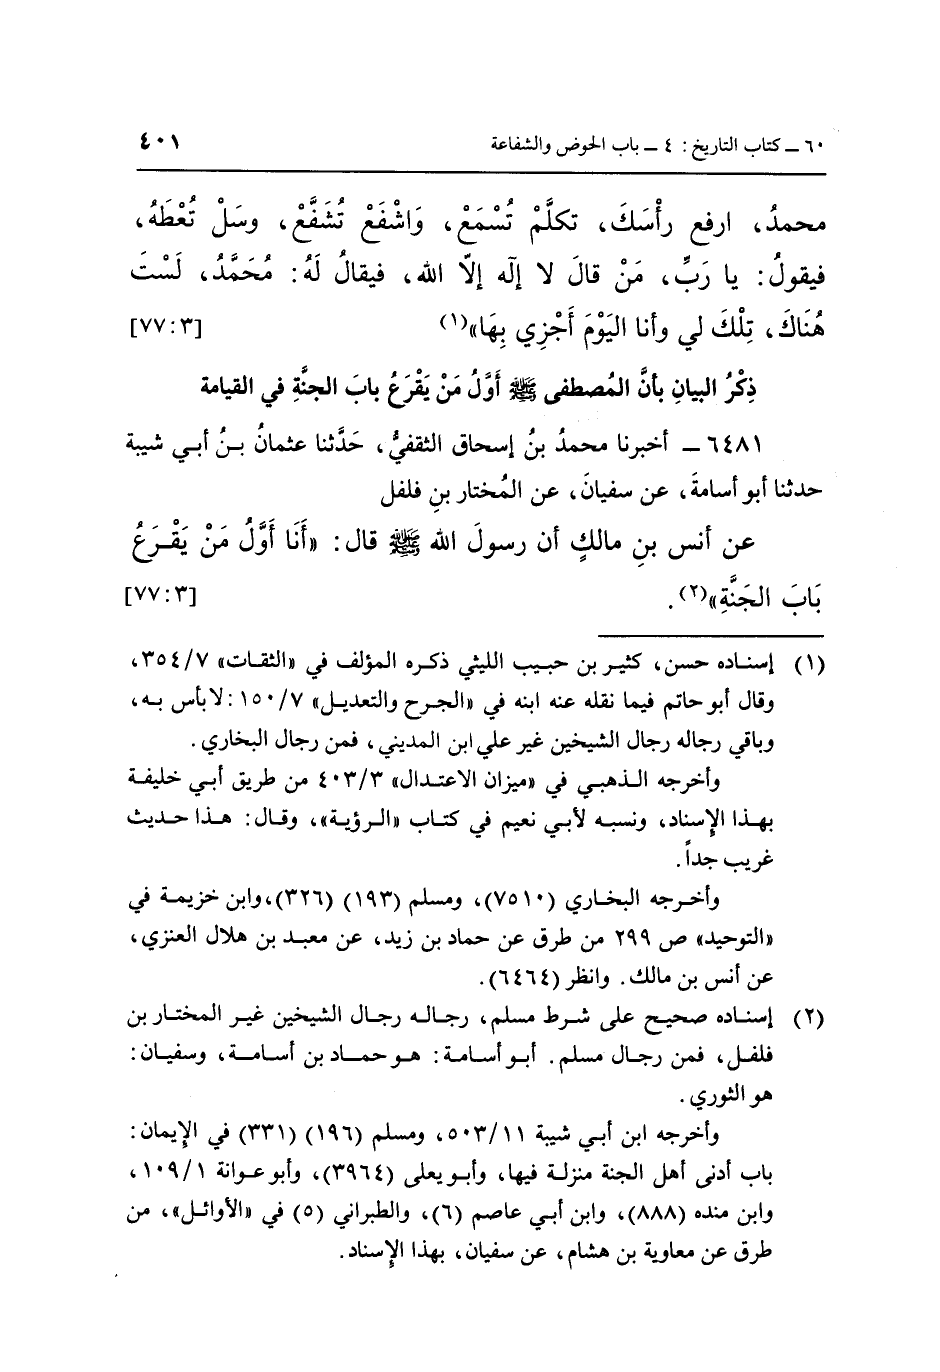 ٦٠ ــ كتاب التاريخ : ٤ ــ باب الحوض والشفاعة ٤٠١
محمدُ، ارفع رأْسَكَ، تكلَّمْ تُسْمَعْ، وَاشْفَعْ تُشَفَّعْ، وسَلْ تُعْطَهُ،
فيقولُ: يا رَبِّ، مَنْ قالَ لا إلٰه إلاّ الله، فيقالُ لَهُ: مُحَمَّدُ، لَسْتَ
هُنَاكَ، تِلْكَ لي وأنا اليَوْمَ أَجْزِي بِهَا»(١) [٣:٧٧]
ذِكْرُ البيانِ بأنَّ المُصطفى ﷺ أَوَّلُ مَنْ يَقْرَعُ بابَ الجنَّةِ في القيامة
٦٤٨١ ــ أخبرنا محمدُ بنُ إسحاق الثقفيُّ، حَدَّثنا عثمانُ بنُ أبي شيبة
حدثنا أبو أسامةَ، عن سفيانَ، عن المُختار بنِ فلفل
عن أنس بنِ مالكٍ أن رسولَ الله ﷺ قال: «أَنَا أَوَّلُ مَنْ يَقْرَعُ
بَابَ الجَنَّةِ»(٢). [٣:٧٧]
(١) إسناده حسن، كثير بن حبيب الليثي ذكره المؤلف في «الثقات» ٣٥٤/٧،
وقال أبو حاتم فيما نقله عنه ابنه في «الجرح والتعديل» ١٥٠/٧: لا بأس به،
وباقي رجاله رجال الشيخين غير علي ابن المديني، فمن رجال البخاري.
وأخرجه الذهبي في «ميزان الاعتدال» ٤٠٣/٣ من طريق أبي خليفة
بهذا الإسناد، ونسبه لأبي نعيم في كتاب «الرؤية»، وقال: هذا حديث
غريب جداً.
وأخرجه البخاري (٧٥١٠)، ومسلم (١٩٣) (٣٢٦)، وابن خزيمة في
«التوحيد» ص ٢٩٩ من طرق عن حماد بن زيد، عن معبد بن هلال العنزي،
عن أنس بن مالك. وانظر (٦٤٦٤).
(٢) إسناده صحيح على شرط مسلم، رجاله رجال الشيخين غير المختار بن
فلفل، فمن رجال مسلم. أبو أسامة: هو حماد بن أسامة، وسفيان:
هو الثوري.
وأخرجه ابن أبي شيبة ٥٠٣/١١، ومسلم (١٩٦) (٣٣١) في الإيمان:
باب أدنى أهل الجنة منزلة فيها، وأبو يعلى (٣٩٦٤)، وأبو عوانة ١٠٩/١،
وابن منده (٨٨٨)، وابن أبي عاصم (٦)، والطبراني (٥) في «الأوائل»، من
طرق عن معاوية بن هشام، عن سفيان، بهذا الإسناد.